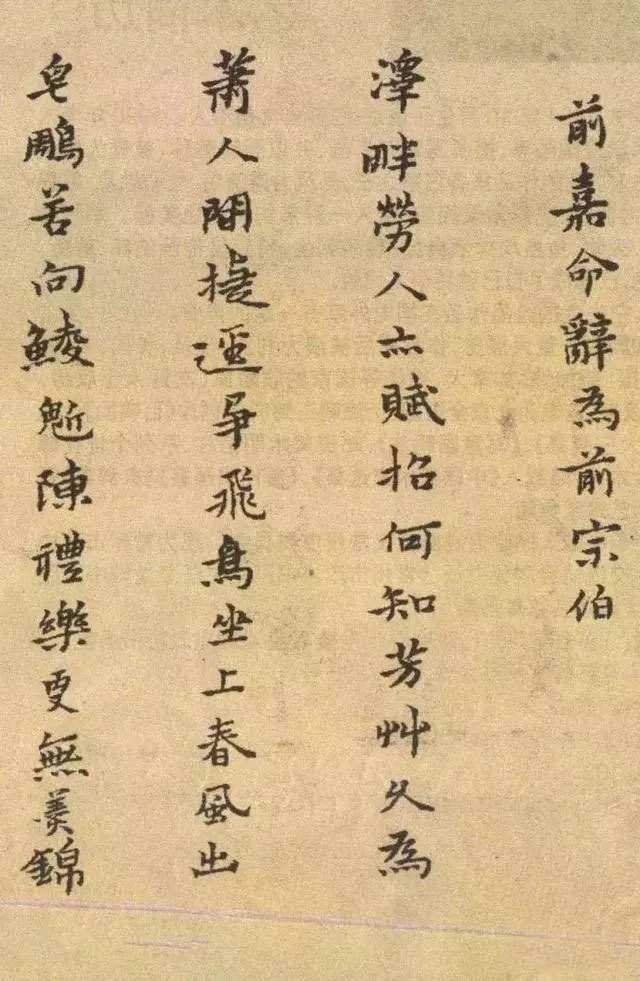 前嘉命辭為前宗伯
澤畔勞人亦賦招何知芳艸久為
蕭人間捷逕爭飛鳥坐上春風出
皂鵰若向鯪鬿陳禮樂更無美錦